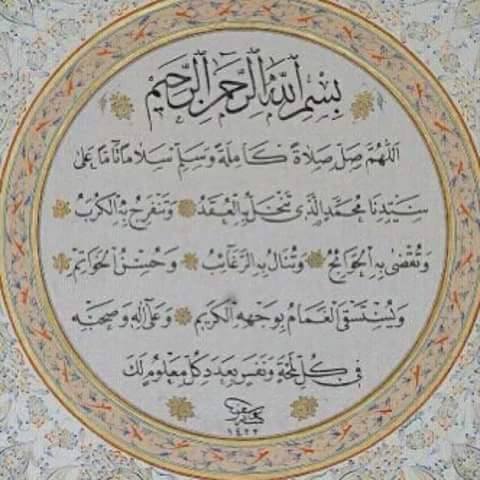 بِسْمِ اللهِ الرَّحْمٰنِ الرَّحِيمِ
اَللّٰهُمَّ صَلِّ صَلَاةً كَامِلَةً وَسَلِّمْ سَلَامًا تَامًّا عَلٰى
سَيِّدِنَا مُحَمَّدٍ الَّذِي تَنْحَلُّ بِهِ الْعُقَدُ وَتَنْفَرِجُ بِهِ الْكُرَبُ
وَتُقْضٰى بِهِ الْحَوَائِجُ وَتُنَالُ بِهِ الرَّغَائِبُ وَحُسْنُ الْخَوَاتِمِ
وَيُسْتَسْقَى الْغَمَامُ بِوَجْهِهِ الْكَرِيمِ وَعَلٰى اٰلِهِ وَصَحْبِهِ
فِي كُلِّ لَمْحَةٍ وَنَفَسٍ بِعَدَدِ كُلِّ مَعْلُومٍ لَكَ
١٤٢٢